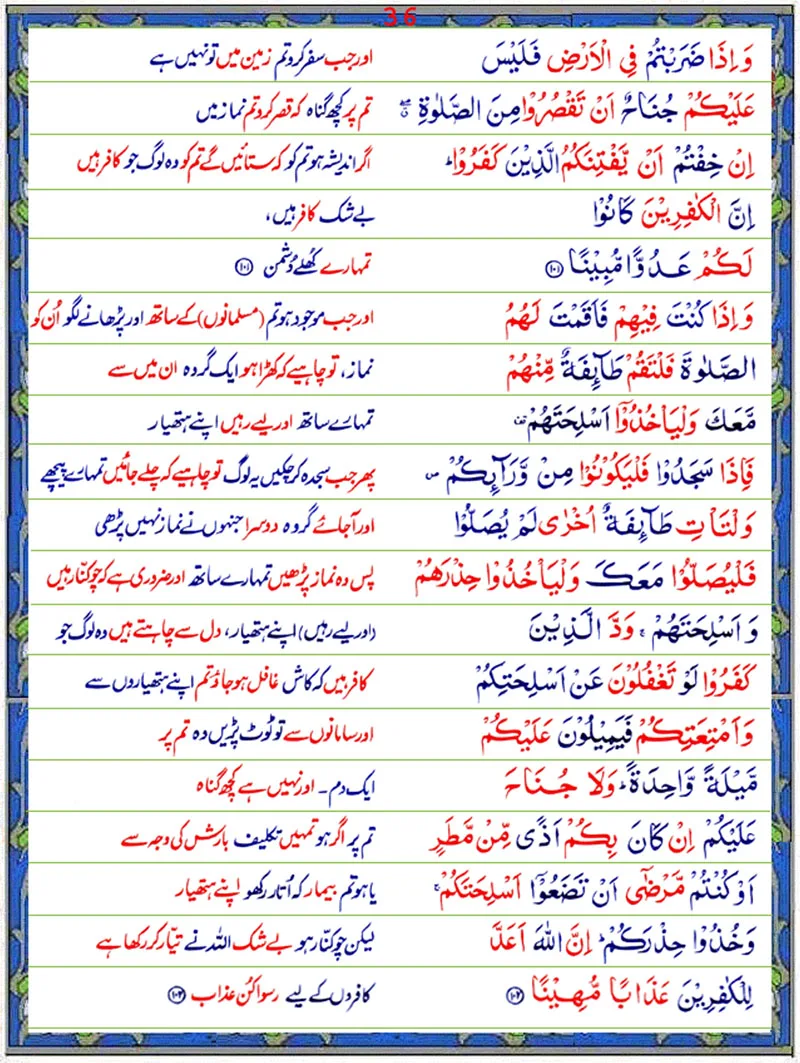 36
وَاِذَا ضَرَبْتُمْ فِي الْاَرْضِ فَلَيْسَ اور جب سفر کرو تم زمین میں تو نہیں ہے
عَلَيْكُمْ جُنَاحٌ اَنْ تَقْصُرُوْا مِنَ الصَّلٰوةِ ۖ تم پر کچھ گناہ کہ قصر کرو تم نماز میں
اِنْ خِفْتُمْ اَنْ يَّفْتِنَكُمُ الَّذِيْنَ كَفَرُوْا ؕ اگر اندیشہ ہو تم کو کہ ستائیں گے تم کو وہ لوگ جو کافر ہیں
اِنَّ الْكٰفِرِيْنَ كَانُوْا بے شک کافر ہیں،
لَكُمْ عَدُوًّا مُّبِيْنًا ۱۰۱ تمہارے کھلے دشمن ۱۰۱
وَاِذَا كُنْتَ فِيْهِمْ فَاَقَمْتَ لَهُمُ اور جب موجود ہو تم (مسلمانوں) کے ساتھ اور پڑھانے لگو اُن کو
الصَّلٰوةَ فَلْتَقُمْ طَآئِفَةٌ مِّنْهُمْ نماز، تو چاہیے کہ کھڑا ہو ایک گروہ ان میں سے
مَّعَكَ وَلْيَاْخُذُوْٓا اَسْلِحَتَهُمْ تمہارے ساتھ اور لیے رہیں اپنے ہتھیار
فَاِذَا سَجَدُوْا فَلْيَكُوْنُوْا مِنْ وَّرَآئِكُمْ ۪ پھر جب سجدہ کرچکیں یہ لوگ تو چاہیے کہ چلے جائیں تمہارے پیچھے
وَلْتَاْتِ طَآئِفَةٌ اُخْرٰى لَمْ يُصَلُّوْا اور آجائے گروہ دوسرا جنہوں نے نماز نہیں پڑھی
فَلْيُصَلُّوْا مَعَكَ وَلْيَاْخُذُوْا حِذْرَهُمْ پس وہ نماز پڑھیں تمہارے ساتھ اور ضروری ہے کہ چوکنّا رہیں
وَاَسْلِحَتَهُمْ ۚ وَدَّ الَّذِيْنَ (اور لیے رہیں) اپنے ہتھیار، دل سے چاہتے ہیں وہ لوگ جو
كَفَرُوْا لَوْ تَغْفُلُوْنَ عَنْ اَسْلِحَتِكُمْ کافر ہیں کہ کاش غافل ہو جاؤ تم اپنے ہتھیاروں سے
وَاَمْتِعَتِكُمْ فَيَمِيْلُوْنَ عَلَيْكُمْ اور سامانوں سے تو ٹوٹ پڑیں وہ تم پر
مَّيْلَةً وَّاحِدَةً ؕ وَلَا جُنَاحَ ایک دم۔ اور نہیں ہے کچھ گناہ
عَلَيْكُمْ اِنْ كَانَ بِكُمْ اَذًى مِّنْ مَّطَرٍ تم پر اگر ہو تمہیں تکلیف بارش کی وجہ سے
اَوْ كُنْتُمْ مَّرْضٰٓى اَنْ تَضَعُوْٓا اَسْلِحَتَكُمْ ۚ یا ہو تم بیمار کہ اُتار رکھو اپنے ہتھیار
وَخُذُوْا حِذْرَكُمْ ؕ اِنَّ اللّٰهَ اَعَدَّ لیکن چوکنّا رہو بے شک اللہ نے تیّار کر رکھا ہے
لِلْكٰفِرِيْنَ عَذَابًا مُّهِيْنًا ۱۰۲ کافروں کے لیے رسوا کُن عذاب ۱۰۲